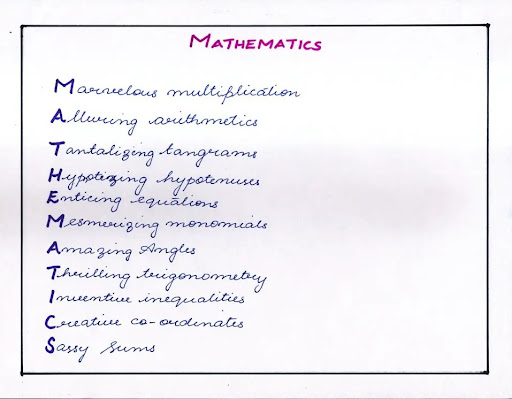 MATHEMATICS
Marvelous multiplication
Alluring arithmetics
Tantalizing tangrams
Hypotizing hypotenuses
Enticing equations
Mesmerizing monomials
Amazing Angles
Thrilling trigonometry
Inventive inequalities
Creative co-ordinates
Sassy Sums